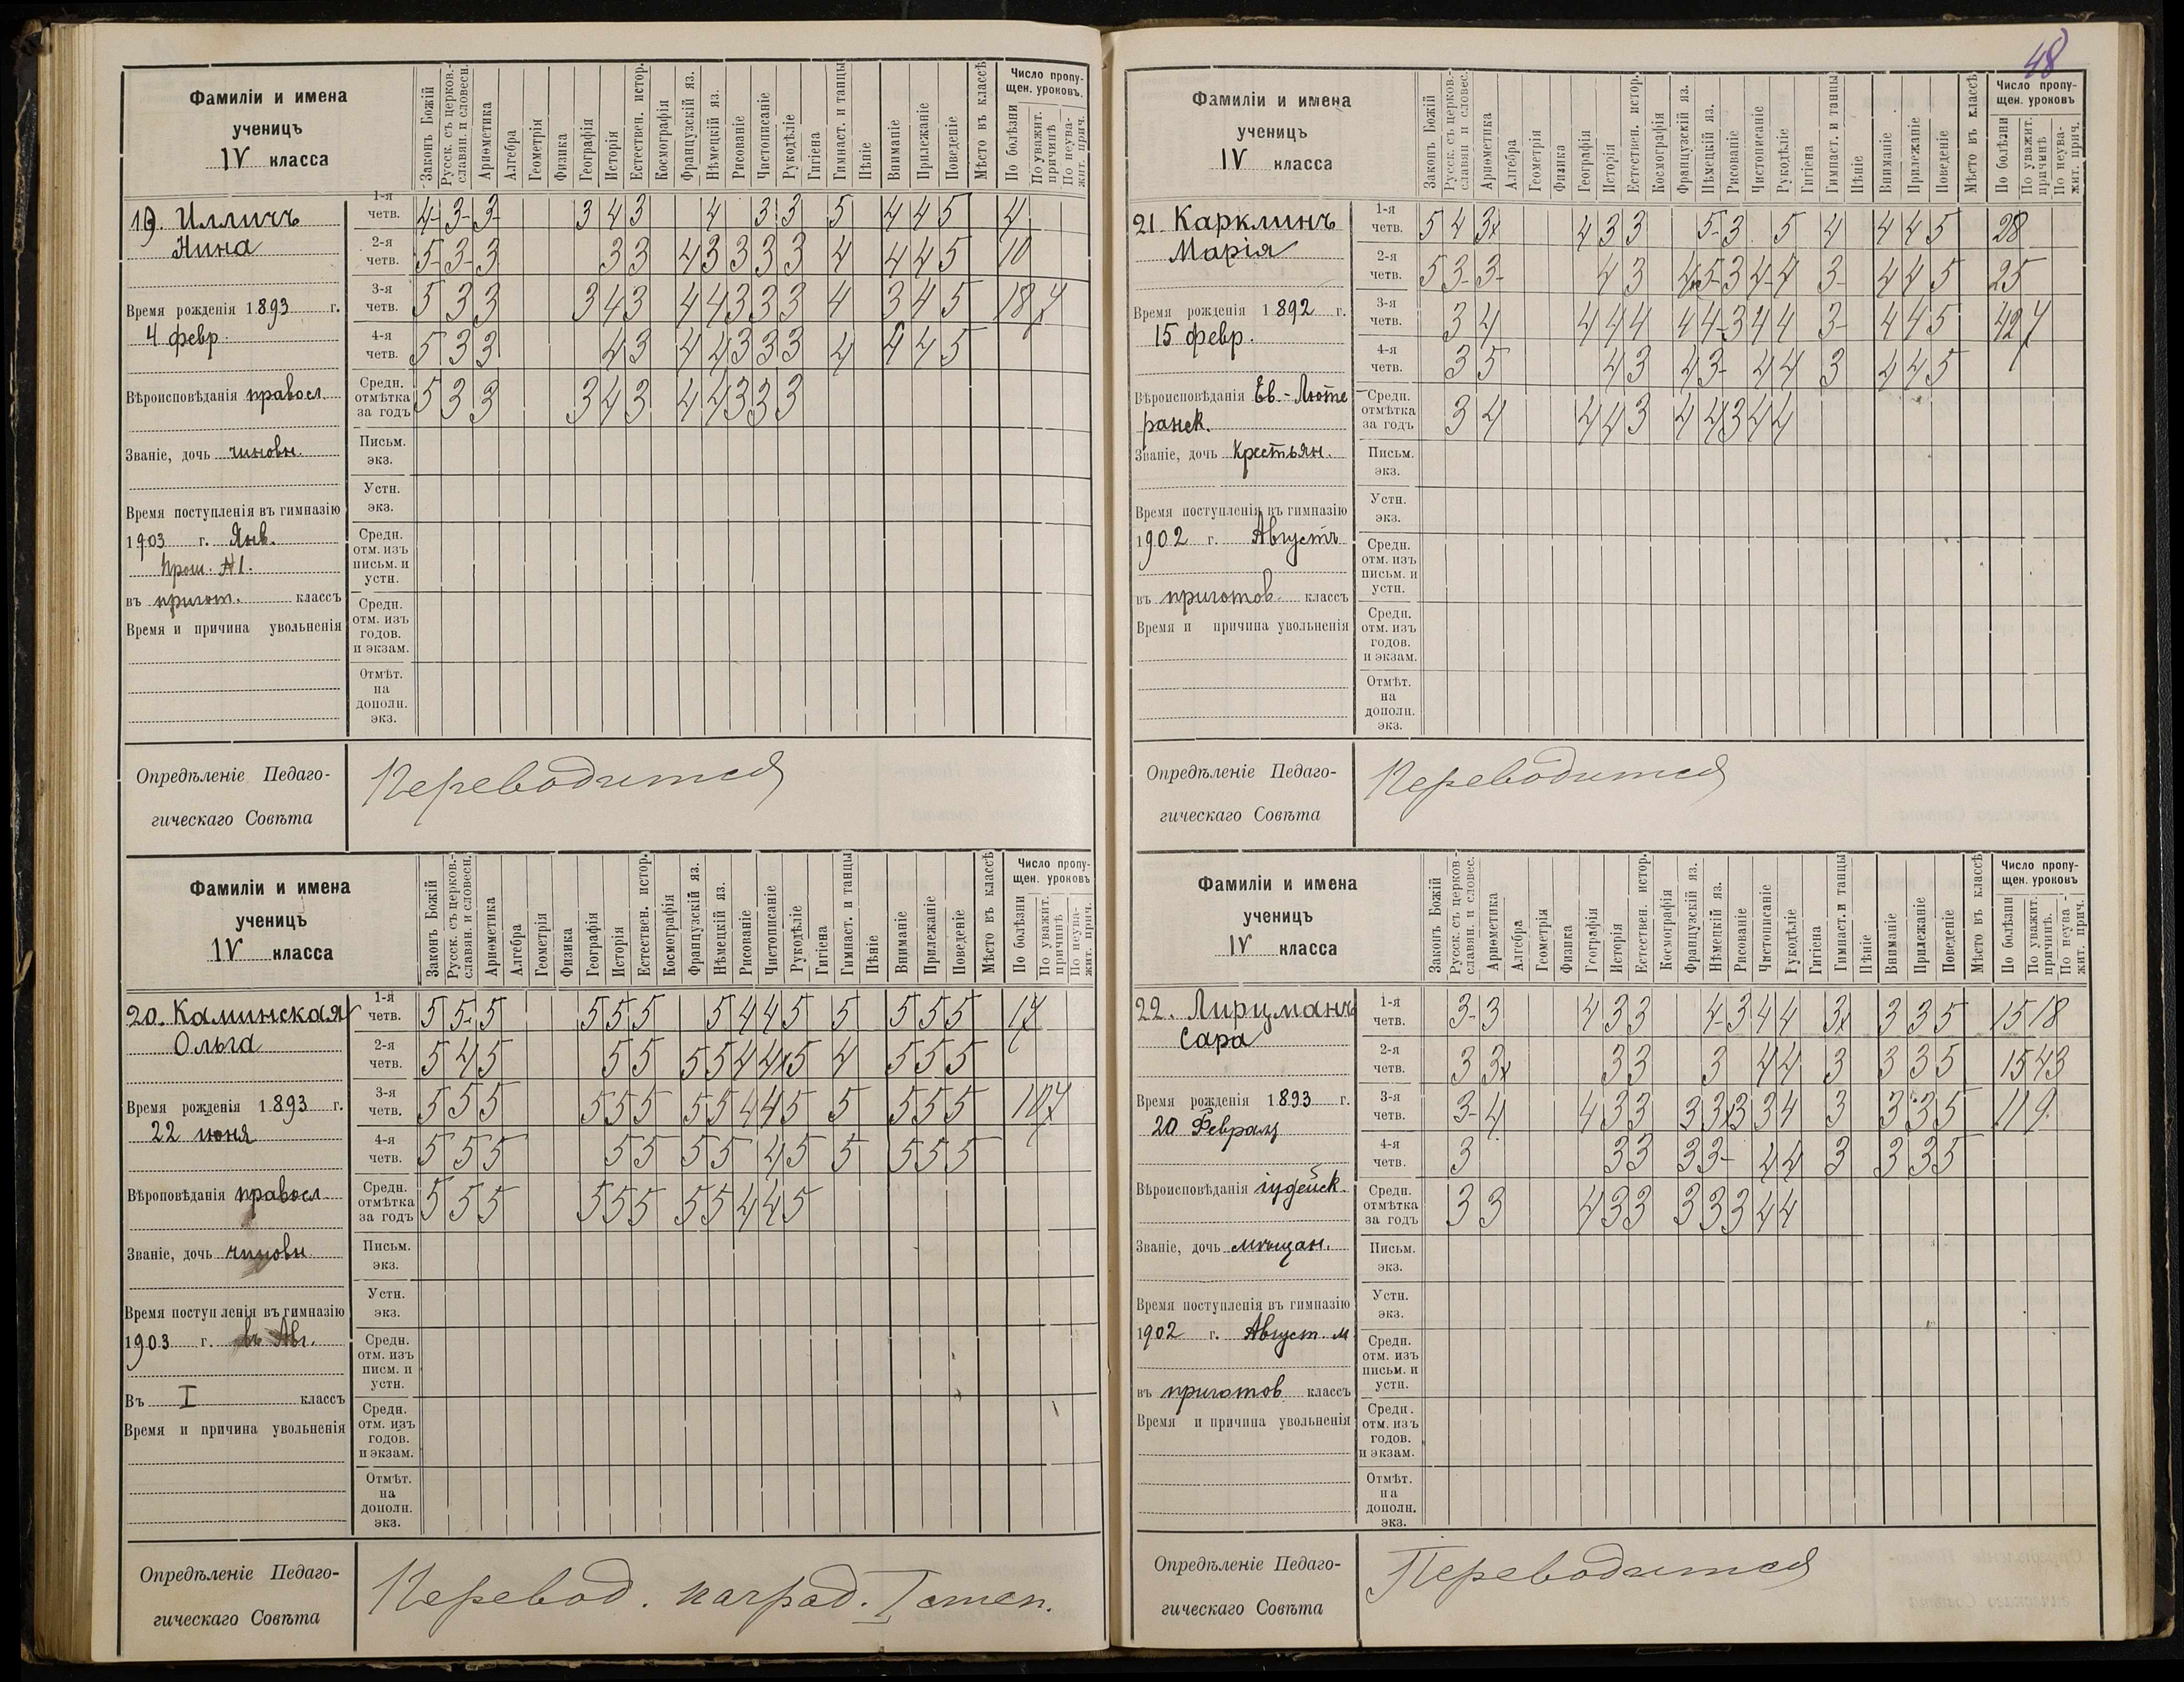 48
Фамиліи и имена
ученицъ
IV класса
Законъ Божій
Русск. съ церков.-славян. и словесн.
Ариѳметика
Алгебра
Геометрія
Физика
Географія
Исторія
Естествен. истор.
Космографія
Французскій яз.
Нѣмецкій яз.
Рисованіе
Чистописаніе
Рукодѣліе
Гигіена
Гимнаст. и танцы
Пѣніе
Вниманіе
Прилежаніе
Поведеніе
Мѣсто въ классѣ
Число пропущен. уроковъ.
По болѣзни
По уважит. причинѣ
По неуважит. прич.
19. Илличъ
Нина
Время рожденія 1893 г.
4 февр.
Вѣроисповѣданія правосл.
Званіе, дочь чиновн.
Время поступленія въ гимназію
1903 г. Янв.
Прош. №1.
въ пригот. классъ
Время и причина увольненія
1-я четв. 4- 3- 3- 3 4 3 4 3 3 5 4 4 5 4
2-я четв. 5- 3- 3 3 3 4 3 3 3 3 4 4 4 5 10
3-я четв. 5 3 3 3 4 3 4 4 3 3 3 4 3 4 5 18 7
4-я четв. 5 3 3 4 3 4 4 3 3 3 4 4 4 5
Средн. отмѣтка за годъ 5 3 3 3 4 3 4 4 3 3 3
Письм. экз.
Устн. экз.
Средн. отм. изъ письм. и устн.
Средн. отм. изъ годов. и экзам.
Отмѣт. на дополн. экз.
Опредѣленіе Педаго-
гическаго Совѣта
Переводится
Фамиліи и имена
ученицъ
IV класса
Законъ Божій
Русск. съ церков.-славян. и словесн.
Ариѳметика
Алгебра
Геометрія
Физика
Географія
Исторія
Естествен. истор.
Космографія
Французскій яз.
Нѣмецкій яз.
Рисованіе
Чистописаніе
Рукодѣліе
Гигіена
Гимнаст. и танцы
Пѣніе
Вниманіе
Прилежаніе
Поведеніе
Мѣсто въ классѣ
Число пропущен. уроковъ
По болѣзни
По уважит. причинѣ
По неуважит. прич.
20. Каминская
Ольга
Время рожденія 1893 г.
22 июня
Вѣроповѣданія правосл.
Званіе, дочь чиновн.
Время поступленія въ гимназію
1903 г. въ Авг.
Въ I классъ
Время и причина увольненія
1-я четв. 5 5- 5 5 5 5 5 4 4 5 5 5 5 5 17
2-я четв. 5 4 5 5 5 5 5 4 4 5 4 5 5 5
3-я четв. 5 5 5 5 5 5 5 5 4 4 5 5 5 5 5 10 7
4-я четв. 5 5 5 5 5 5 5 4 5 5 5 5 5
Средн. отмѣтка за годъ 5 5 5 5 5 5 5 5 4 4 5
Письм. экз.
Устн. экз.
Средн. отм. изъ писм. и устн.
Средн. отм. изъ годов. и экзам.
Отмѣт. на дополн. экз.
Опредѣленіе Педаго-
гическаго Совѣта
Перевод. наград. I степ.
Фамиліи и имена
ученицъ
IV класса
Законъ Божій
Русск. съ церков.-славян и словес.
Ариѳметика
Алгебра
Геометрія
Физика
Географія
Исторія
Естествен. истор.
Космографія
Французскій яз.
Нѣмецкій яз.
Рисованіе
Чистописаніе
Рукодѣліе
Гигіена
Гимнаст. и танцы
Пѣніе
Вниманіе
Прилежаніе
Поведеніе
Мѣсто въ классѣ
Число пропущен. уроковъ
По болѣзни
По уважит. причинѣ
По неуважит. прич.
21. Карклинъ
Марія
Время рожденія 1892 г.
15 февр.
Вѣроисповѣданія Ев.-Люте
ранск.
Званіе, дочь Крестьян.
Время поступленія въ гимназію
1902 г. Августъ
въ приготов. классъ
Время и причина увольненія
1-я четв. 5 4 3 4 3 3 5- 3 5 4 4 4 5 28
2-я четв. 5 3- 3- 4 3 4 5- 3 4- 4 3- 4 4 5 25
3-я четв. 3 4 4 4 4 4 4- 3 4 4 3- 4 4 5 42 7
4-я четв. 3 5 4 3 4 3- 4 4 3 4 4 5
Средн. отмѣтка за годъ 3 4 4 4 3 4 4 3 4 4
Письм. экз.
Устн. экз.
Средн. отм. изъ письм. и устн.
Средн. отм. изъ годов. и экзам.
Отмѣт. на дополн. экз.
Опредѣленіе Педаго-
гическаго Совѣта
Переводится
Фамиліи и имена
ученицъ
IV класса
Законъ Божій
Русск. съ церков-славян. и словес.
Ариѳметика
Алгебра
Геометрія
Физика
Географія
Исторія
Естествен. истор.
Космографія
Французскій яз.
Нѣмецкій яз.
Рисованіе
Чистописаніе
Рукодѣліе
Гигіена
Гимнаст. и танцы
Пѣніе
Вниманіе
Прилежаніе
Поведеніе
Мѣсто въ классѣ
Число пропущен. уроковъ
По болѣзни
По уважит. причинѣ.
По неуважит. прич.
22. Лирцманъ
Сара
Время рожденія 1893 г.
20 Февраля
Вѣроисповѣданія іудейск.
Званіе, дочь мѣщан.
Время поступленія въ гимназію
1902 г. Август. м
въ приготов классъ
Время и причина увольненія
1-я четв. 3- 3 4 3 3 4- 3 4 4 3 3 3 5 15 18
2-я четв. 3 3 3 3 3 4 4 3 3 3 5 15 43
3-я четв. 3- 4 4 3 3 3 3 3 3 4 3 3 3 5 11 9
4-я четв. 3 3 3 3 3- 4 4 3 3 3 5
Средн. отмѣтка за годъ 3 3 4 3 3 3 3 3 4 4
Письм. экз.
Устн. экз.
Средн. отм. изъ письм. и устн.
Средн. отм. изъ годов. и экзам.
Отмѣт. на дополн. экз.
Опредѣленіе Педаго-
гическаго Совѣта
Переводится